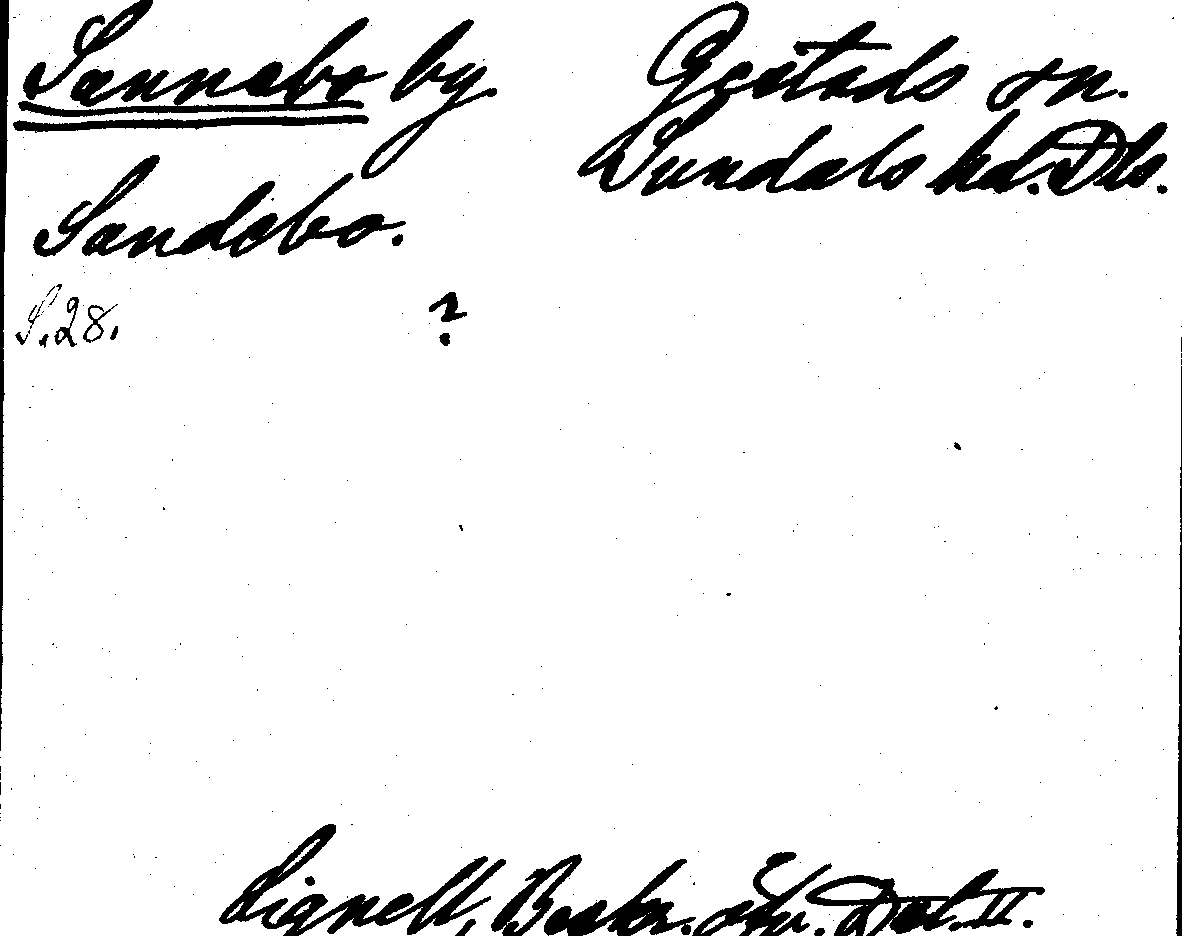 Sannebo by
Gestads sn.
Sundals hd. Dls.
Sandebo.
S. 28. ?
Lignell, Beskr. öfv. Dal. II.